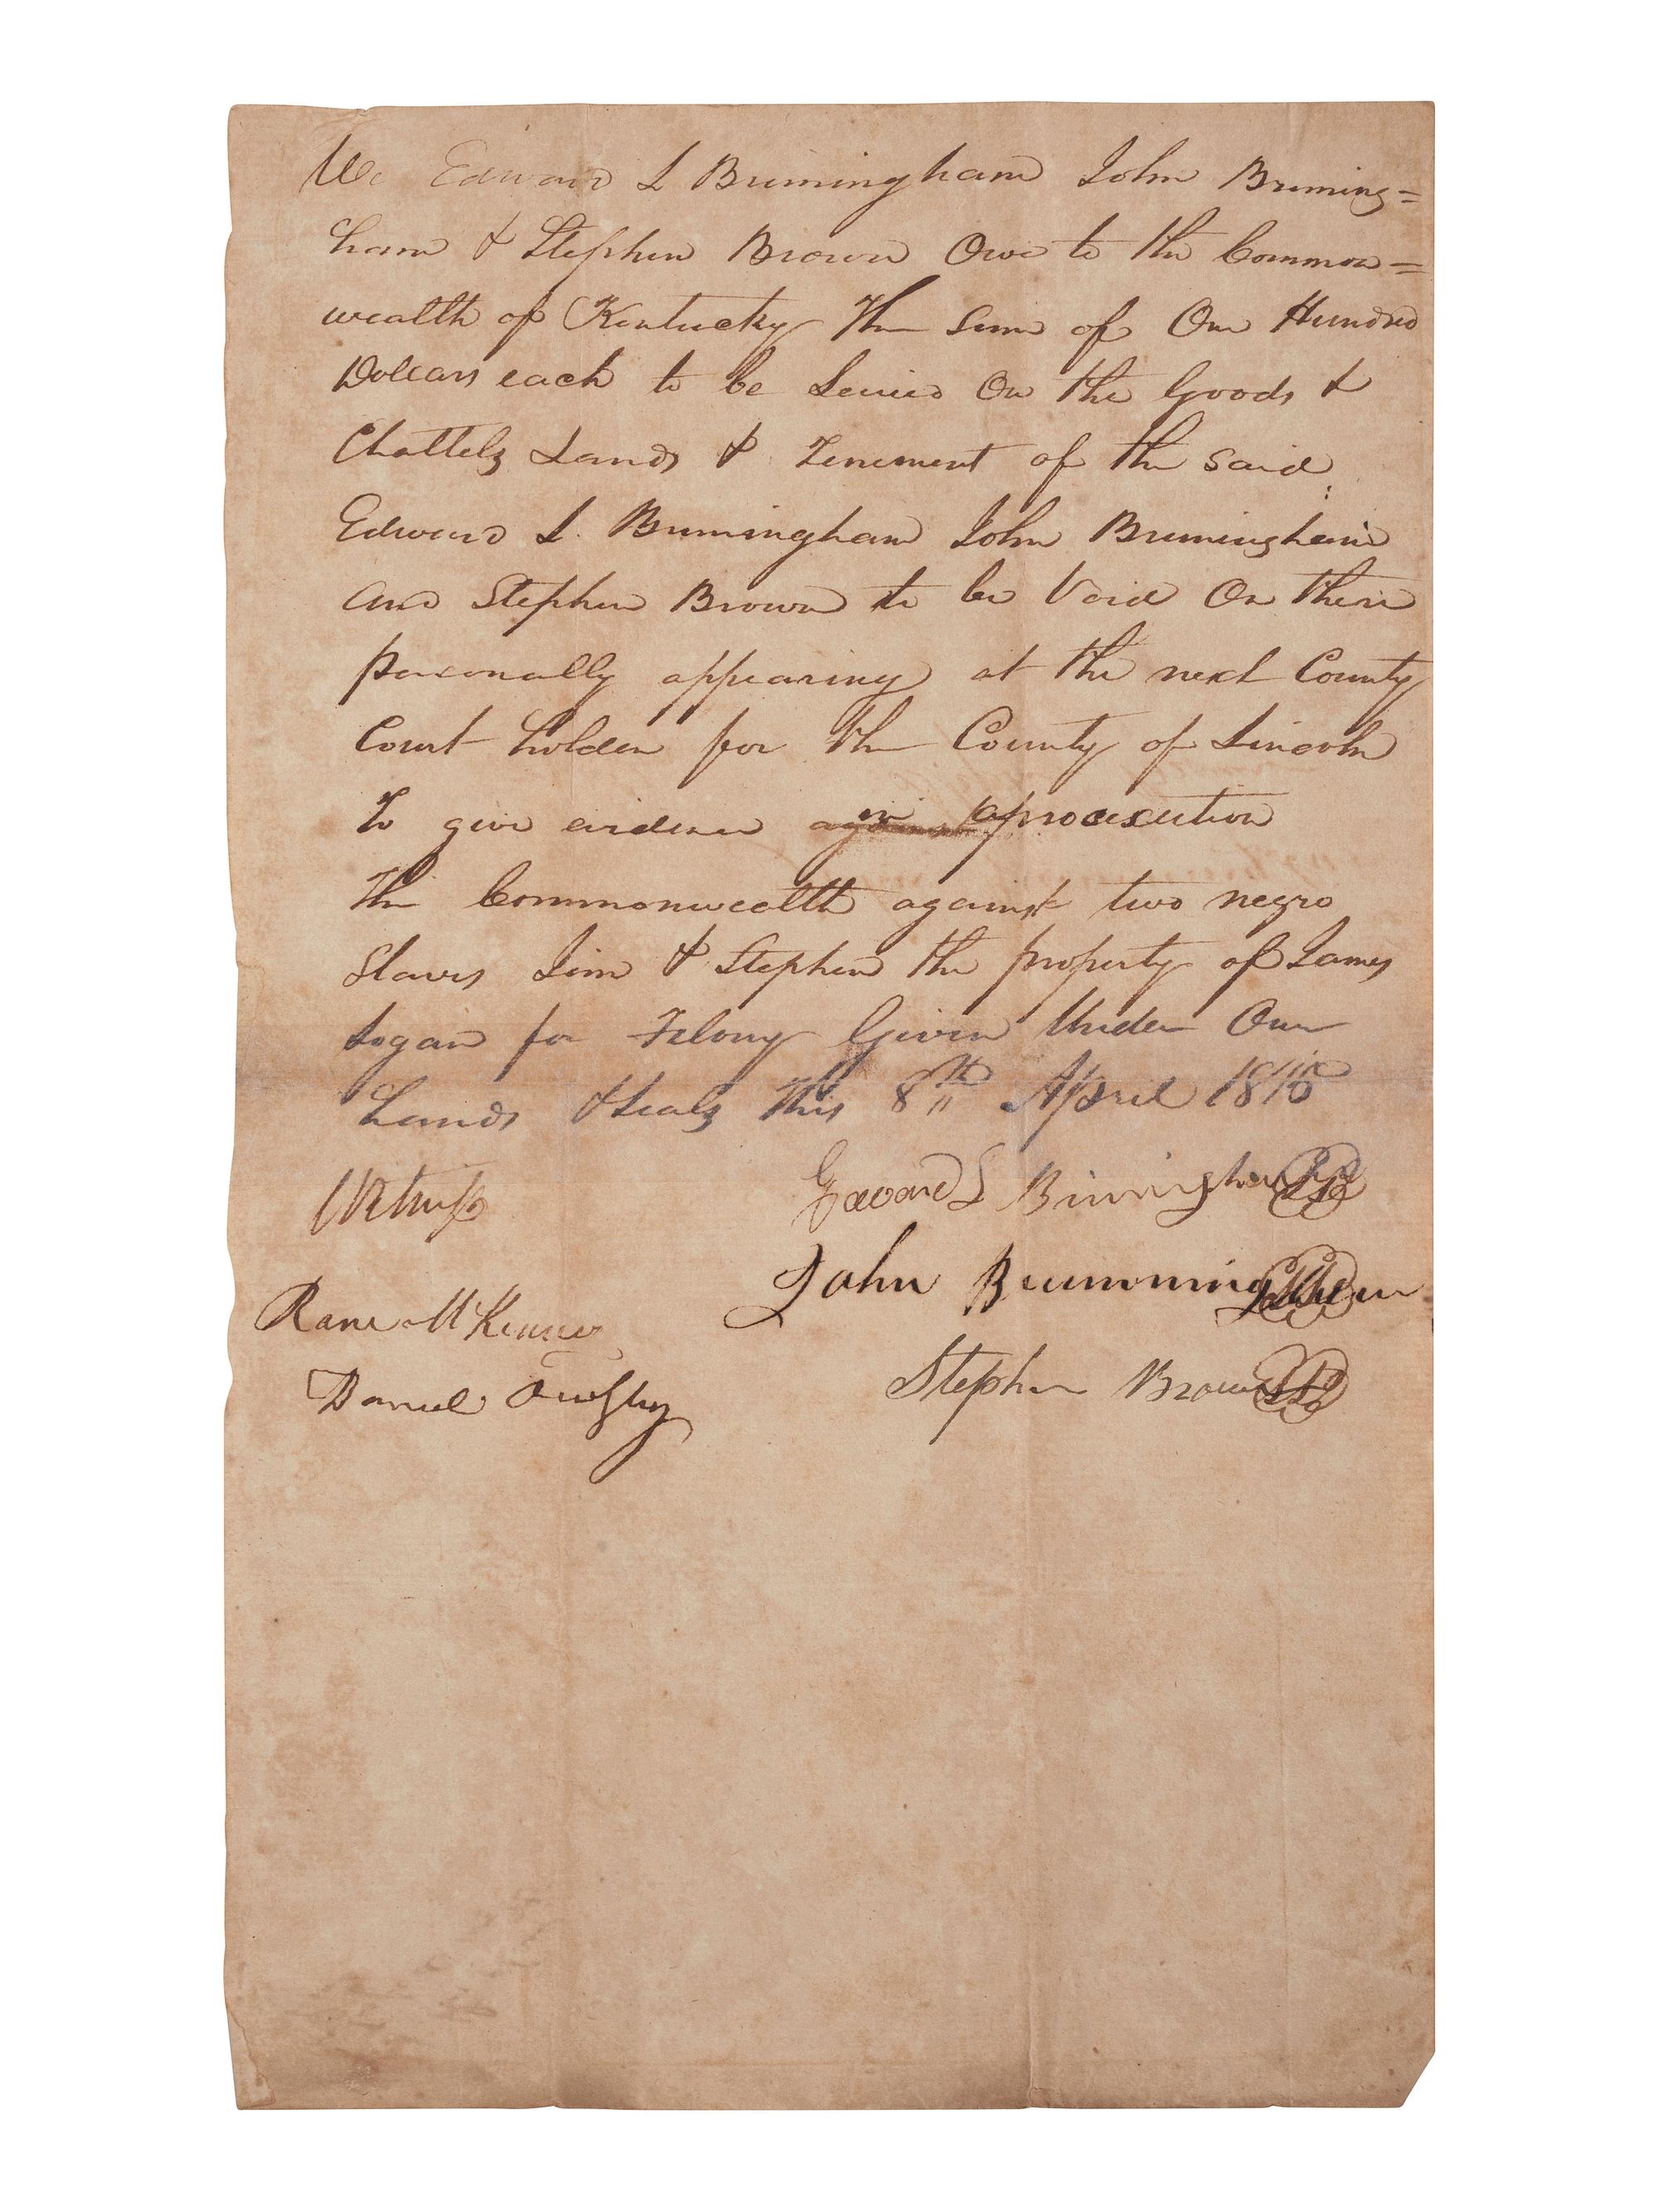 We Edward L Brumingham John Bruming=
ham & Stephen Brown Owe to the Common=
wealth of Kentucky The Sum of One Hundred
Dollars each to be Levied On the Goods &
Chattels Lands & Tenement of the said
Edward L. Brumingham John Brumingham
and Stephen Brown to be Void On there
personally appearing at the next County
Court holden for the County of Lincoln
To give evidence in aprosecution
The Commonwealth against two negro
Slaves Jim & Stephen the property of James
Logan for Felony Given Under Our
hands & seals This 8th April 1810
Witness
Edward L Birmingham
John Brummingham
Stephen Brown
Rane McKinney
Daniel Owsley